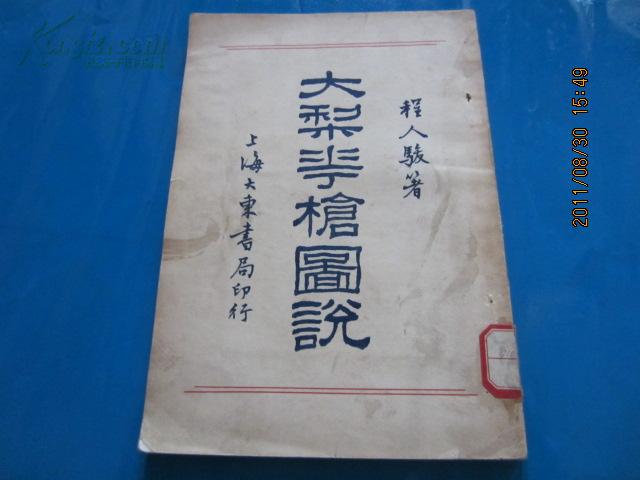 程人駿著
大梨花槍圖説
上海大東書局印行
2011/08/30 15:49